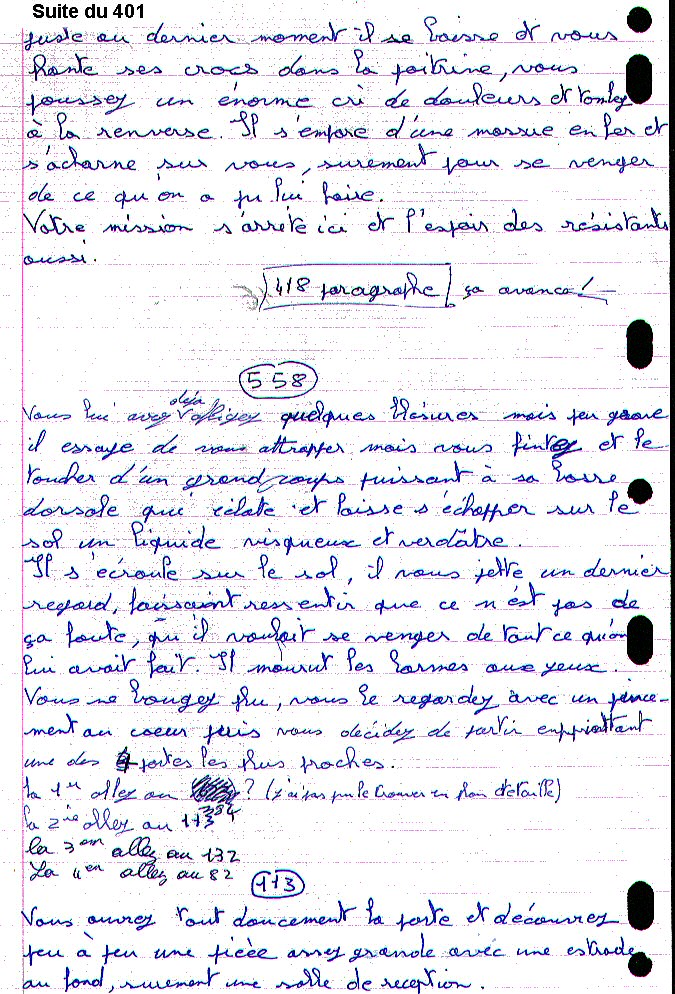 Suite du 401
juste au dernier moment il se baisse et vous
plante ses crocs dans la poitrine, vous
poussez un énorme cri de douleurs et tombez
à la renverse. Il s'empare d'une massue en fer et
s'acharne sur vous, surement pour se venger
de ce qu'on a pu lui faire.
Votre mission s'arrète ici et l'espoir des résistants
aussi.
418 paragraphe ça avance!
558
Vous lui avez déjà affligez quelques blésures mais peu grave
il essaye de vous attrapper mais vous fintez et le
toucher d'un grand coups puissant à sa bosse
dorsale qui éclate et laisse s'échapper sur le
sol un liquide visqueux et verdâtre.
Il s'écroule sur le sol, il vous jette un dernier
regard, faissaint ressentir que ce n'est pas de
ça faute, qu'il voulait se venger de tout ce qu'on
lui avait fait. Il mourut les larmes aux yeux.
Vous ne bougez plu, vous le regardez avec un pince-
ment au coeur puis vous décidez de partir en
une des 4 portes les plus proches.
la 1er allez au ? (j'ai pas pu le trouver en plan détaillé)
la 2ie allez au
la 3em allez au 132
La 4en allez au 82
113
Vous ouvrez tout doucement la porte et découvrez
peu à peu une pièce assez grande avec une estrade
au fond, surement une salle de reception.